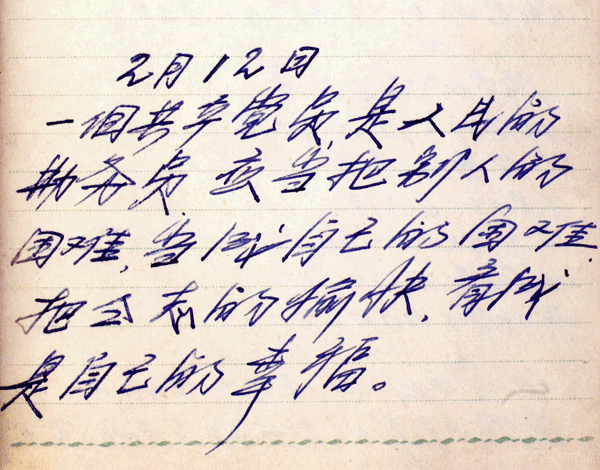 2月12日
一個共产党员,是人民的
勤务员 应当把别人的
困难,当成自己的困难.
把同志的愉快,看成
是自己的幸福。